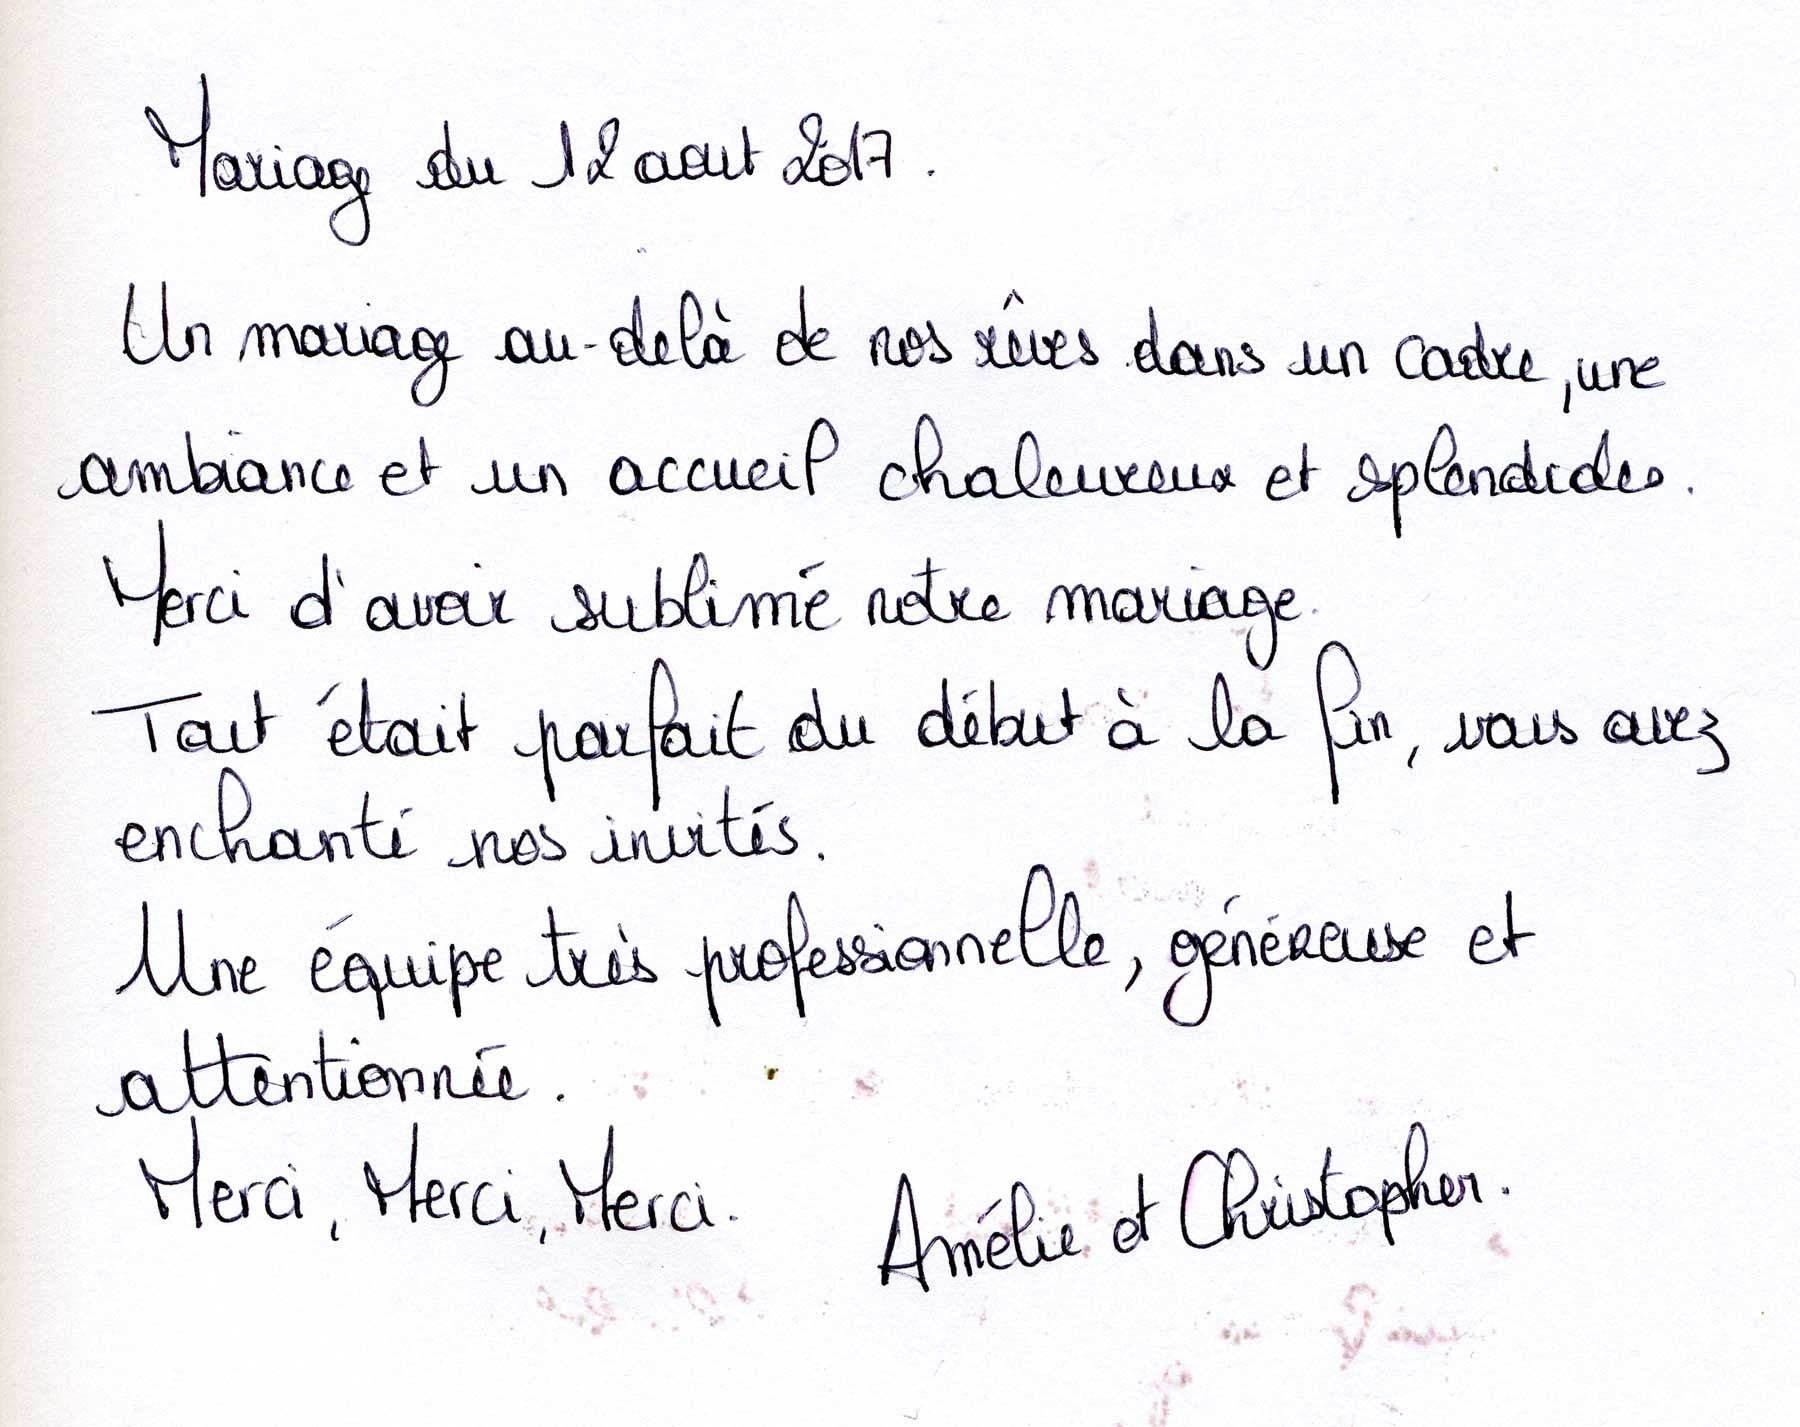 Mariage du 12 aout 2017.
Un mariage au-delà de nos rêves dans un cadre, une
ambiance et un accueil chaleureux et splendides.
Merci d'avoir sublimé notre mariage.
Tout était parfait du début à la fin, vous avez
enchanté nos invités.
Une équipe très professionnelle, généreuse et
attentionnée.
Merci, Merci, Merci.
Amélie et Christopher.